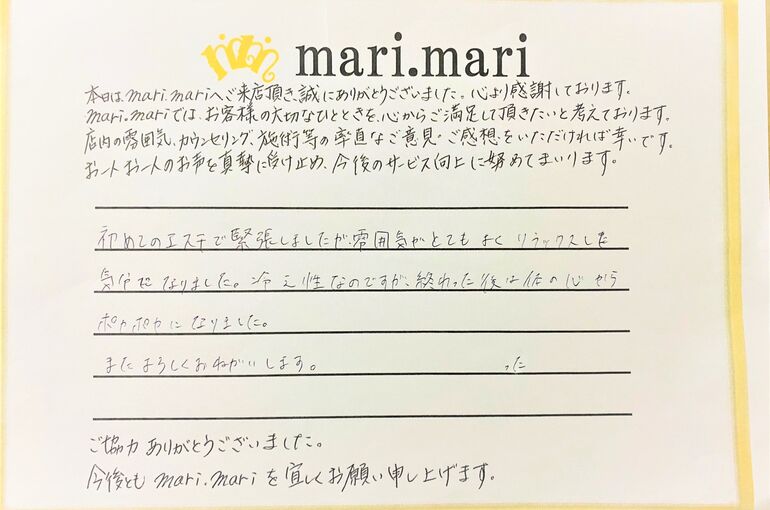 mari.mari
本日はmari.mariへご来店頂き、誠にありがとうございました。心より感謝しております。
mari.mariでは、お客様の大切なひとときを、心からご満足して頂きたいと考えております。
店内の雰囲気、カウンセリング、施術等の率直なご意見・ご感想をいただければ幸いです。
お一人お一人のお声を真摯に受け止め、今後のサービス向上に努めてまいります。
初めてのエステで緊張しましたが、雰囲気がとてもよくリラックスした
気分になりました。冷え性なのですが、終わった後は体の心から
ポカポカになりました。
またよろしくおねがいします。
った
ご協力ありがとうございました。
今後ともmari.mariを宜しくお願い申し上げます。